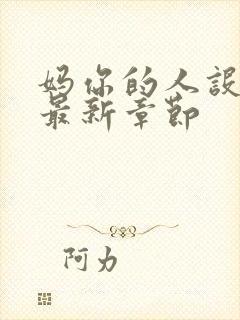 妈你的人设
最新章节
阿力